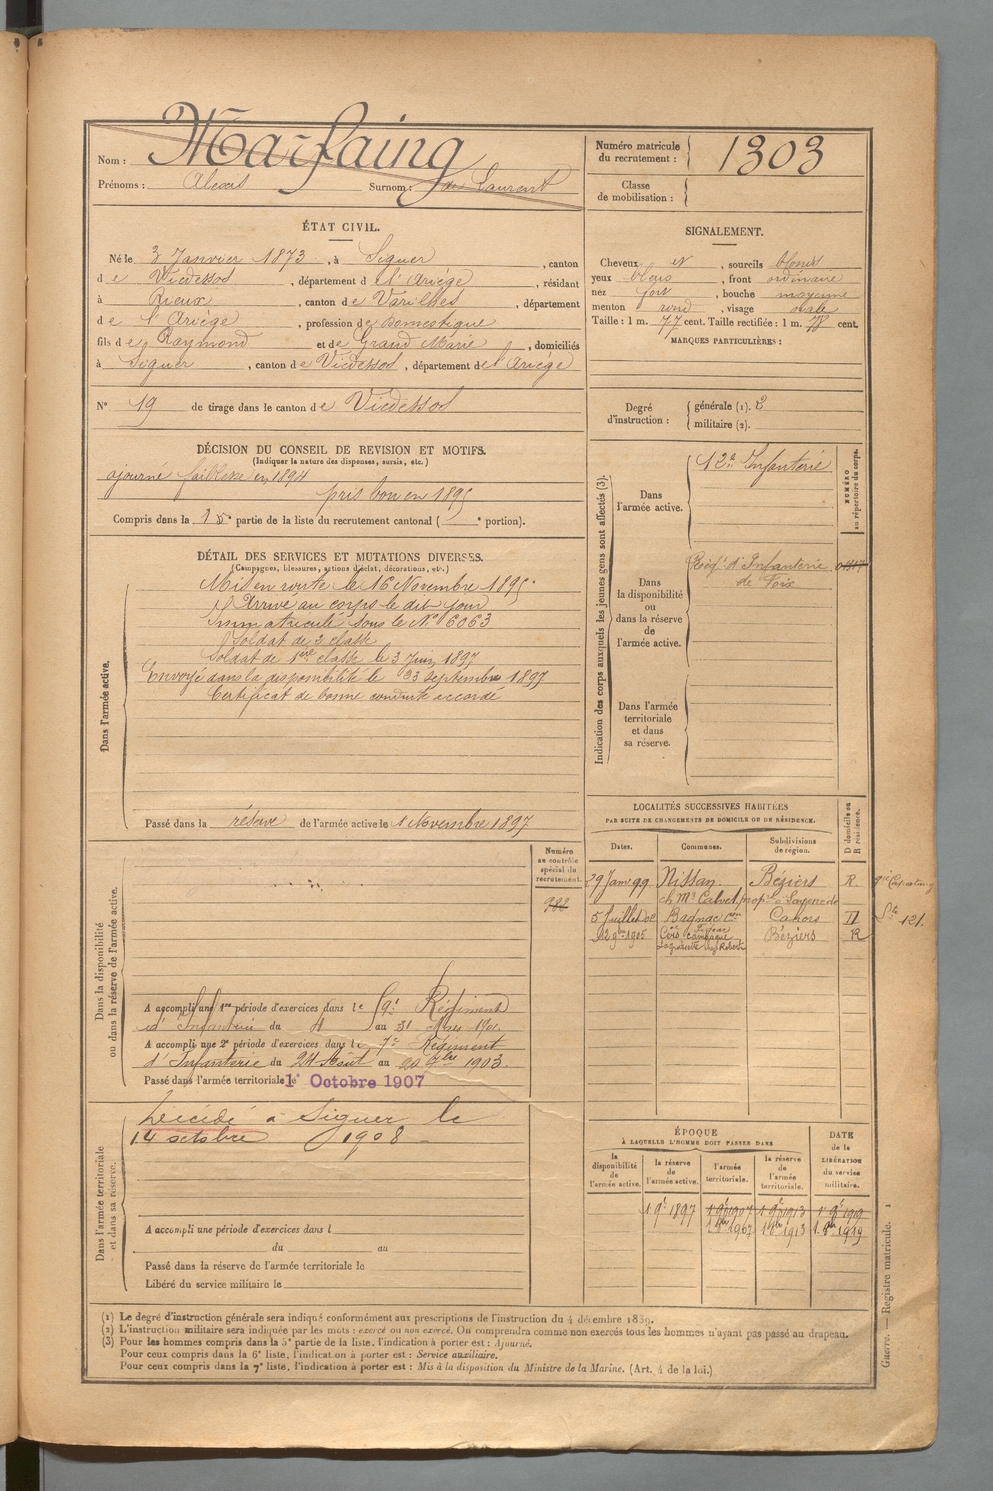 Nom : Marfaing
Prénoms : Alexis Surnom : dit Laurent
Numéro matricule du recrutement : 1303
Classe de mobilisation :
ÉTAT CIVIL.
Né le 3 Janvier 1873, à Siguer, canton
de Vicdessos, département de l'Ariège, résidant
à Rieux, canton de Varilhes, département
de l'Ariège, profession de Domestique
fils de Raymond et de Grand Marie, domiciliés
à Siguer, canton de Vicdessos, département de l'Ariège
N° 19 de tirage dans le canton de Vicdessos
SIGNALEMENT.
Cheveux et, sourcils blonds
yeux bleus, front ordinaire
nez fort, bouche moyenne
menton rond, visage ovale
Taille : 1 m. 77 cent. Taille rectifiée : 1 m. 78 cent.
MARQUES PARTICULIÈRES :
Degré d'instruction : générale (1). 2
militaire (2).
DÉCISION DU CONSEIL DE REVISION ET MOTIFS.
(Indiquer la nature des dispenses, sursis, etc.)
ajourné faiblesse en 1894
pris bon en 1895
Compris dans la 1 partie de la liste du recrutement cantonal ( portion).
DÉTAIL DES SERVICES ET MUTATIONS DIVERSES.
(Campagnes, blessures, actions d'éclat, décorations, etc.)
Dans l'armée active.
Mis en route le 16 Novembre 1895
Arrivé au corps le dit jour
Immatriculé sous le N° 6063
Soldat de 2 classe
Soldat de 1ère classe le 3 Juin 1897
Envoyé dans la disponibilité le 23 Septembre 1897
Certificat de bonne conduite accordé
Passé dans la réserve de l'armée active le 1 Novembre 1897
Indication des corps auxquels les jeunes gens sont affectés (3).
NUMÉRO au répertoire du corps.
Dans l'armée active.
12e Infanterie
Dans la disponibilité ou dans la réserve de l'armée active.
Régt d'Infanterie
de Foix
Dans l'armée territoriale et dans sa réserve.
LOCALITÉS SUCCESSIVES HABITÉES
PAR SUITE DE CHANGEMENTS DE DOMICILE OU DE RÉSIDENCE.
Dates. Communes. Subdivisions de région. D domicile ou R résidence.
29 Janv 99 Nissan Béziers R
ch Mr Calvet prop
5 Juillet 02 Bagnac Cahors D
12 9bre 1905 Cers Béziers R
121.
Dans la disponibilité ou dans la réserve de l'armée active.
Numéro au contrôle spécial du recrutement.
982
A accompli une 1re période d'exercices dans le 9e Régiment
d'Infanterie du 4 au 31 Mars
A accompli une 2e période d'exercices dans le 7e Régiment
d'Infanterie du 24 Août au 20 7bre 1903.
Passé dans l'armée territoriale le 1er Octobre 1907
Dans l'armée territoriale et dans sa réserve.
Décédé à Siguer le
14 octobre 1908
A accompli une période d'exercices dans l
du au
Passé dans la réserve de l'armée territoriale le
Libéré du service militaire le
ÉPOQUE
À LAQUELLE L'HOMME DOIT PASSER DANS
DATE de la LIBÉRATION du service militaire.
la disponibilité de l'armée active. la réserve de l'armée active. l'armée territoriale. la réserve de l'armée territoriale.
1 9e 1897 1 9e 1907 1 9e 1913 1 9e 1919
1 8bre 1907 1 8bre 1913 1 8bre 1919
(1) Le degré d'instruction générale sera indiqué conformément aux prescriptions de l'instruction du 4 décembre 1889.
(2) L'instruction militaire sera indiquée par les mots : exercé ou non exercé. On comprendra comme non exercés tous les hommes n'ayant pas passé au drapeau.
(3) Pour les hommes compris dans la 5e partie de la liste, l'indication à porter est : Ajourné.
Pour ceux compris dans la 6e liste, l'indication à porter est : Service auxiliaire.
Pour ceux compris dans la 7e liste, l'indication à porter est : Mis à la disposition du Ministre de la Marine. (Art. 4 de la loi.)
Guerre. — Registre matricule. 1